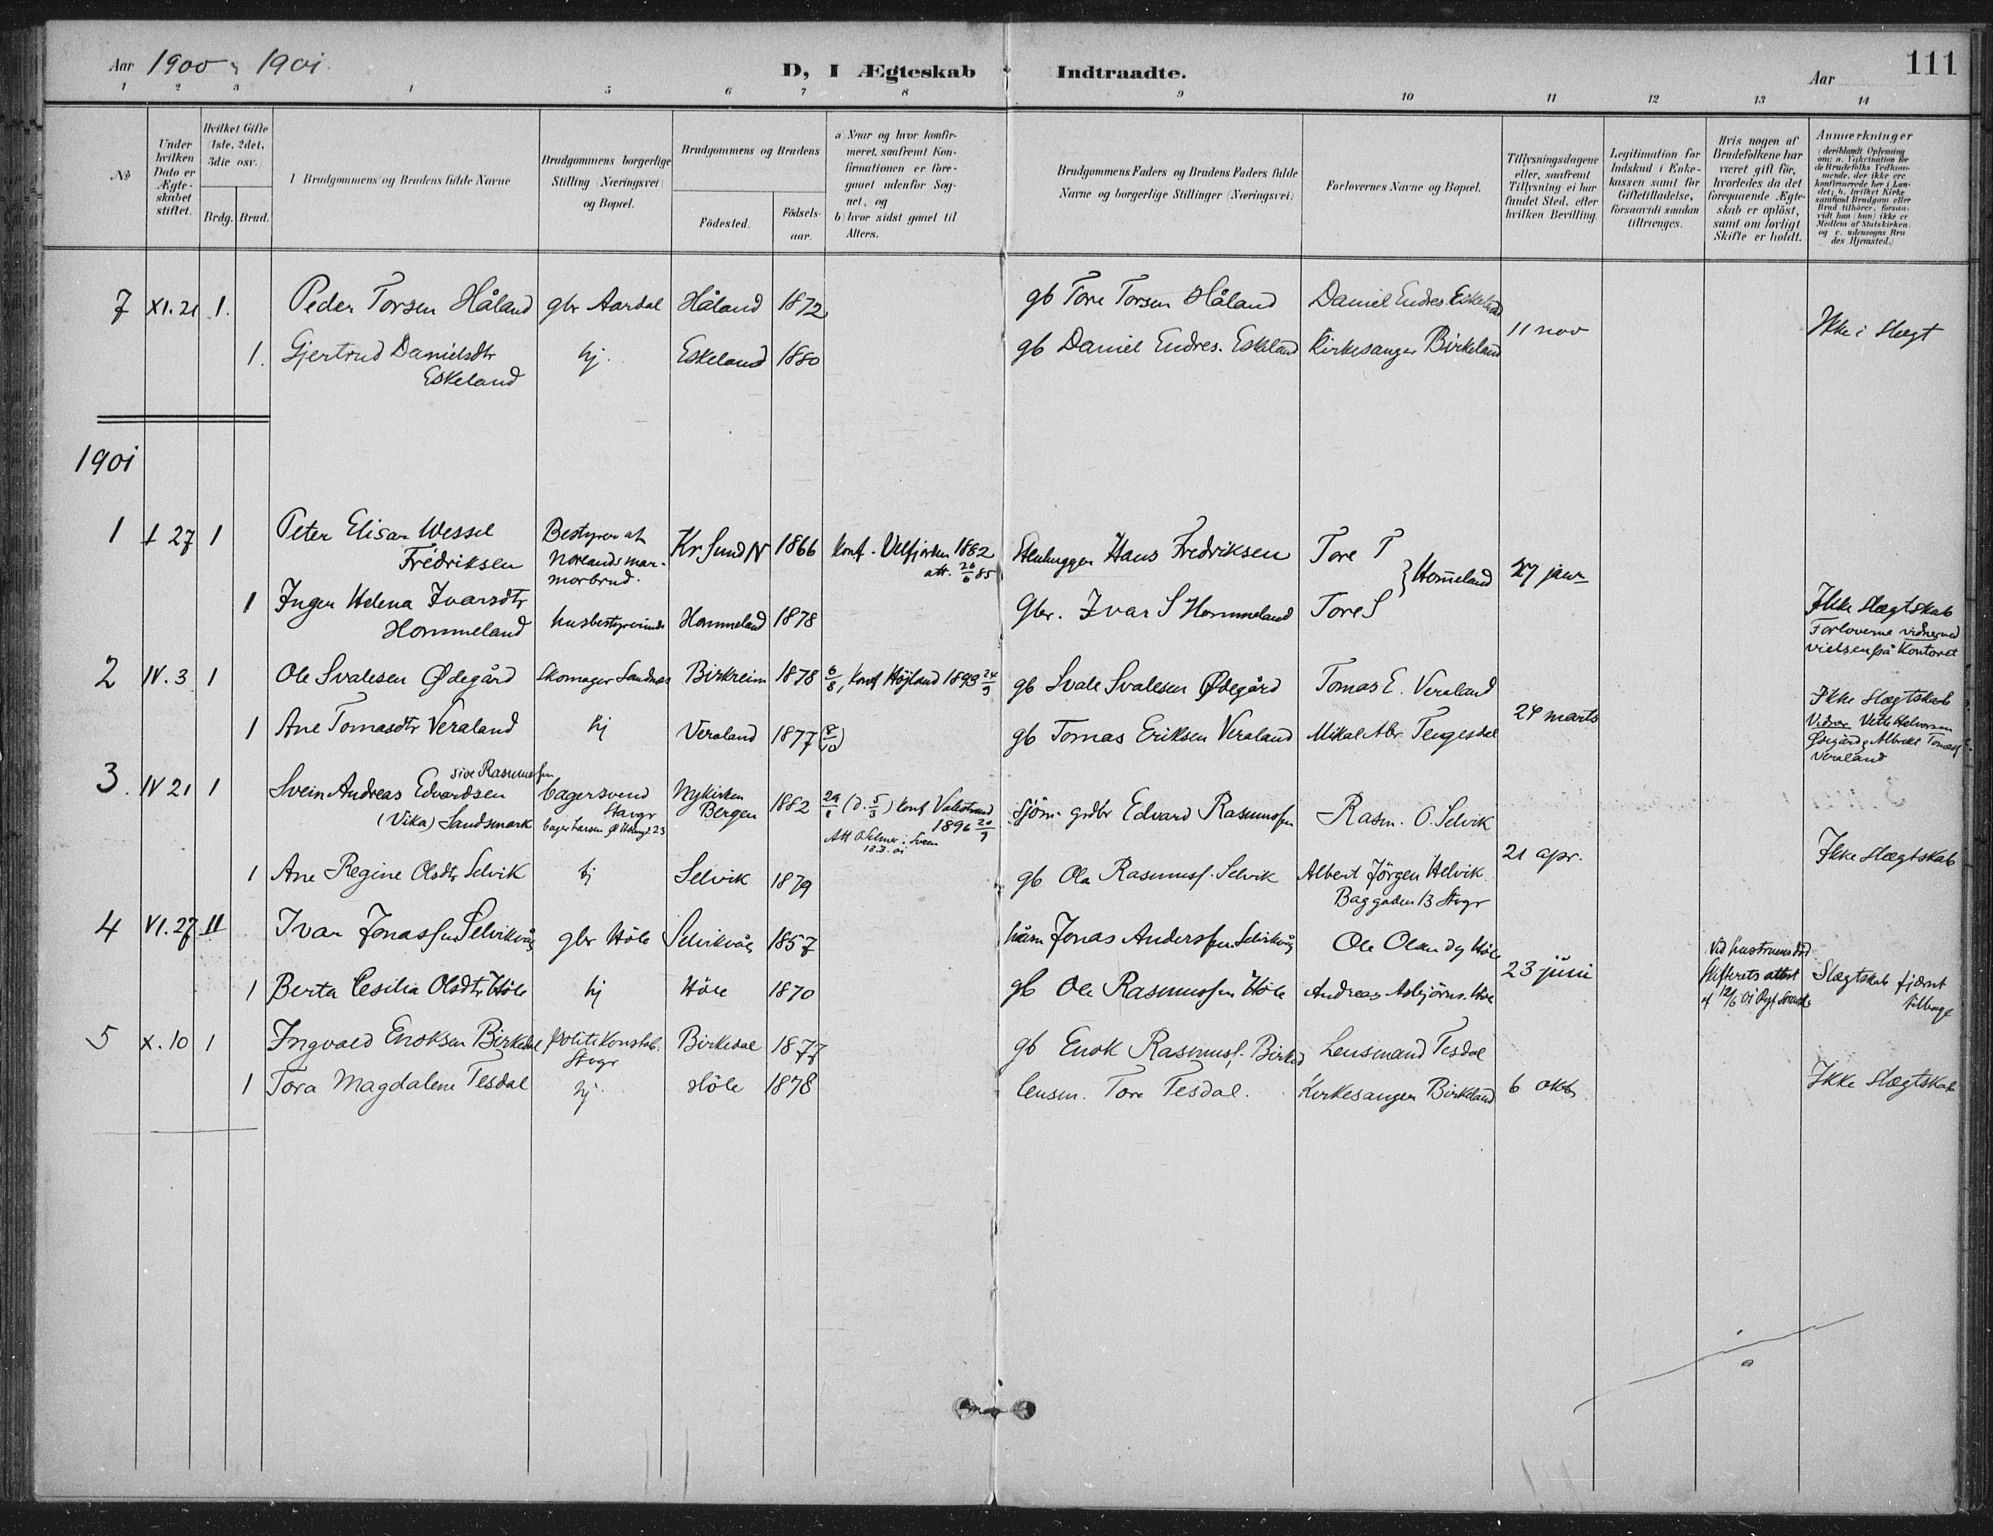 Aar 1900 1901.
D, I Ægteskab Indtraadte.
Aar
111
1 2 3 4 5 6 7 8 9 10 11 12 13 14
No
Under hvilken Dato er Ægteskabet stiftet.
Hvilket Gifte (1ste, 2det, 3die osv.)
Brdg. Brud.
Brudgommens og Brudens fulde Navne
Brudgommens borgerlige Stilling (Næringsvei) og Bopæl.
Brudgommens og Brudens
Födested.
Födselsaar.
a) Naar og hvor konfirmeret, saafremt Konfirmationen er foregaaet udenfor Sognet, og
b) hvor sidst gaaet til Alters.
Brudgommens Faders og Brudens Faders fulde Navne og borgerlige Stillinger (Næringsvei)
Forlovernes Navne og Bopæl.
Tillysningsdagene eller, saafremt Tillysning ei har fundet Sted, efter hvilken Bevilling.
Legitimation for Indskud i Enkekassen samt for Giftetilladelse, forsaavidt saadan tiltrænges.
Hvis nogen af Brudefolkene har været gift för, hvorledes da det foregaaende Ægteskab er oplöst, samt om lovligt Skifte er holdt.
Anmærkninger (deriblandt Oplysning om: a. Vakcination for de Brudefolks Vedkommende, der ikke ere konfirmerede her i Landet; b. hvilket Kirkesamfund Brudgom eller Brud tilhörer, forsaavidt han (hun) ikke er Medlem af Statskirken, og c. udensogns Brudes Hjemsted.)
7 XI.21 1. Peder Torsen Håland gbr Aardal Håland 1872 gb Tore Torsen Håland Daniel Endres. Eskeland
11 nov Ikke i Slegt
1. Gjertrud Danielsdtr hj. Eskeland 1880 gb Daniel Endres. Eskeland Kirkesanger Birkeland
Eskeland
1901
1 I 27 1 Peter Elisar Wessel Bestyrer at Kr. Sund N 1866 konf. Velfjorden 1882 Stenhugger Hans Fredriksen Tore T
Fredriksen Norlands marmorbrud. att. 26/6 85 Hommeland 27 janr
1 Inger Helena Ivarsdtr husbestyrerinde Hommeland 1878 Gbr. Ivar S Hommeland Tore S
Hommeland
Ikke Slegtskab
Forloverne vidner ved
vielsen på Kontoret
2 IV.3 1 Ole Svalesen Ødegård Skomager Sandnes Birkreim 1878 6/8, konf Högland 1893 24/9 gb Svale Svalesen Ødegård Tomas E. Veraland
24 marts
Ikke Slegtskab
Vidner Vetle Halvorsen
Ødegård & Albrekt Tomass.
Veraland
1 Ane Tomasdtr Veraland hj Veraland 1877 (8/10) gb Tomas Eriksen Veraland Mikal Abr. Tengesdal
3. IV 21 1 Svein Andreas Edvardsen sive Rasmussen bagersvend Nykirken Bergen 1882 29/1 (d. 5/3) konf Valestrand 1896 20/9 Sjöm. grdbr Edvard Rasmussen Rasm. O. Selvik
(Vika) Sandsmark Stavgr
bager Larsen 23
21 apr. Ikke Slegtskab
1 Ane Regine Olsdtr Selvik hj Selvik 1879 gb Ola Rasmuss. Selvik Albert Jörgen Helvik
Baggaden 13 Stvgr
4 VI.27 II Ivar Jonassen Selvikvåg gbr Höle Selvikvåg 1857 husm Jonas Anderssen Selvikvåg Ole Olsen dy Höle
23 juni
Ved hustruens död
Skifterets attest
af 12/6 01
Slægtskab fjernt
tilbage
1 Berta Cesilia Olsdtr Höle hj Höle 1870 gb Ole Rasmussen Höle Andreas Asbjörns. Höle
5 X.10 1 Ingvald Enoksen Birkedal politikonstab. Stvgr Birkedal 1877 gb Enok Rasmuss. Birked Lensmand Tesdal
1 Tora Magdalene Tesdal hj. Höle 1878 lensm. Tore Tesdal. Kirkesanger Birkeland 6 oktb Ikke Slegtskab